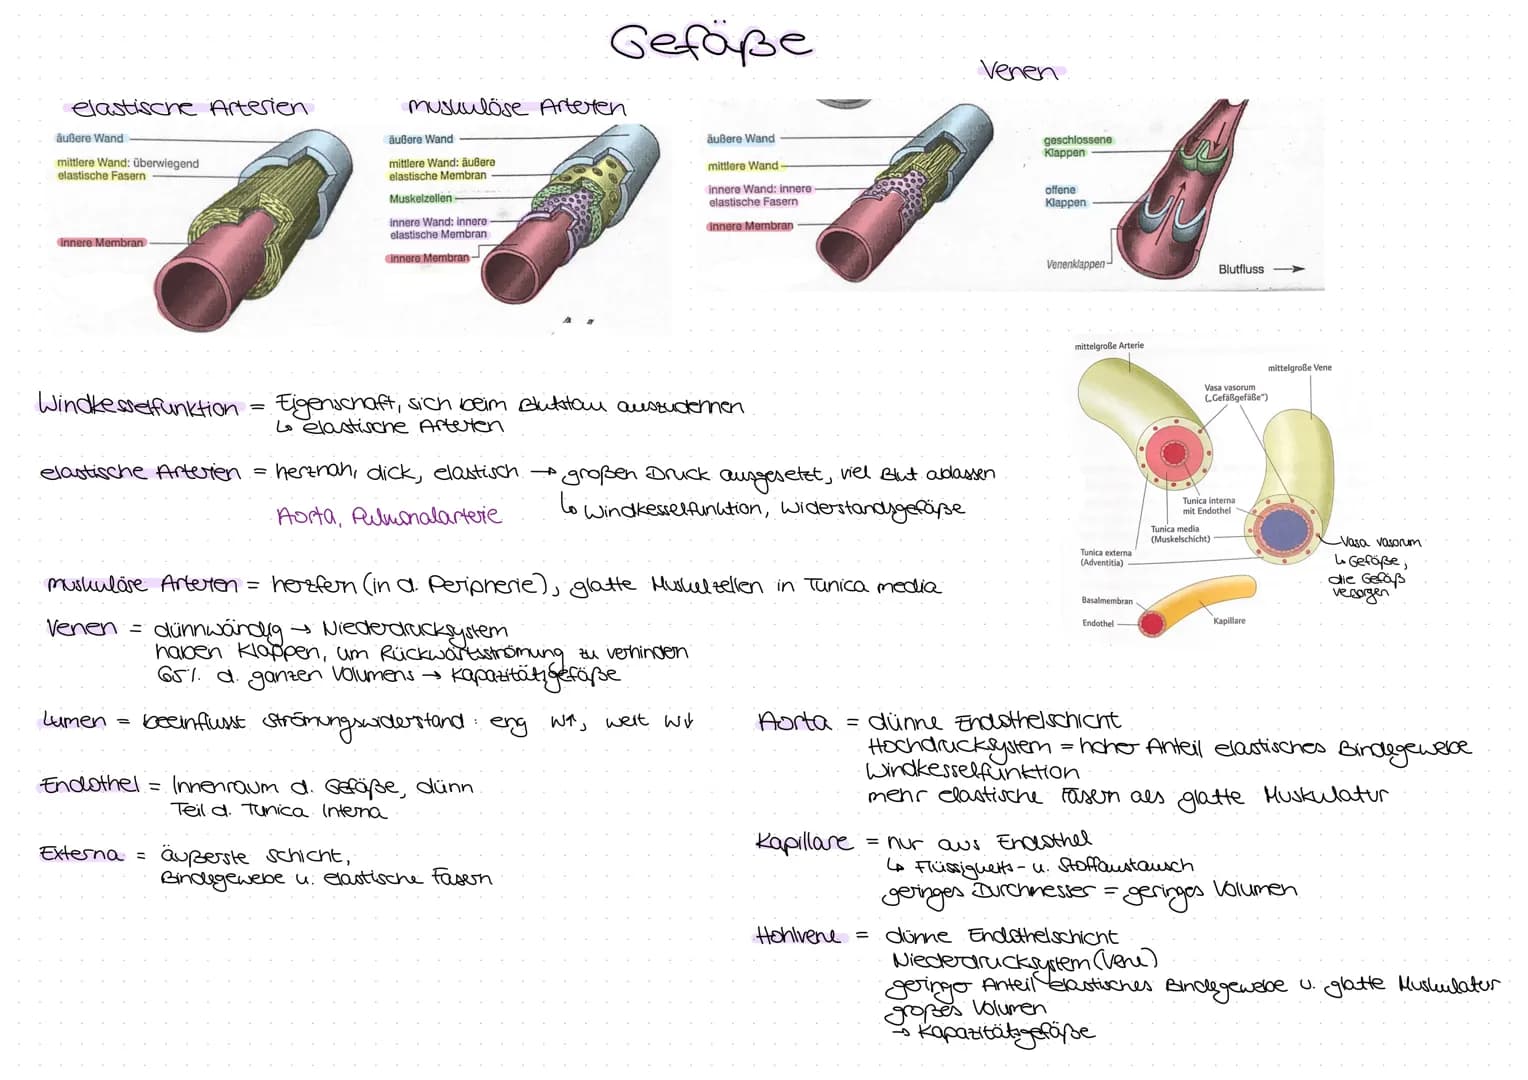 Gefäße
Venen
elastische Arterien
muskulöse Arterien
äußere Wand
mittlere Wand: überwiegend
elastische Fasern
innere Membran
äußere Wand
mittlere Wand: äußere
elastische Membran
Muskelzellen
innere Wand: innere
elastische Membran
innere Membran
äußere Wand
mittlere Wand
innere Wand: innere
elastische Fasern
innere Membran
geschlossene
Klappen
offene
Klappen
Venenklappen
Blutfluss
mittelgroße Arterie
mittelgroße Vene
Vasa vasorum
(„Gefäßgefäße")
Tunica interna
mit Endothel
Tunica media
(Muskelschicht)
Tunica externa
(Adventitia)
Basalmembran
Endothel
Kapillare
Vasa vasorum
↳ Gefäße,
die Gefäß
versorgen
Windkesselfunktion = Eigenschaft, sich beim Blutstau auszudehnen
↳ elastische Arterien
elastische Arterien = herznah, dick, elastisch → großen Druck ausgesetzt, viel Blut ablassen
Aorta, Pulmonalarterie ↳ Windkesselfunktion, Widerstandsgefäße
muskulöse Arterien = herzfern (in d. Peripherie), glatte Muskelzellen in Tunica media
Venen = dünnwändig → Niederdrucksystem
haben Klappen, um Rückwärtsströmung zu verhindern
65% d. ganzen Volumens → Kapazitätsgefäße
Lumen = beeinflusst Strömungswiderstand: eng W↑, weit W↓
Endothel = Innenraum d. Gefäße, dünn
Teil d. Tunica Interna
Externa = äußerste Schicht,
Bindegewebe u. elastische Fasern
Aorta = dünne Endothelschicht
Hochdrucksystem = hoher Anteil elastisches Bindegewebe
Windkesselfunktion
mehr elastische Fasern als glatte Muskulatur
Kapillare = nur aus Endothel
↳ Flüssigkeits- u. Stoffaustausch
geringes Durchmesser = geringes Volumen
Hohlvene = dünne Endothelschicht
Niederdrucksystem (Vene)
geringer Anteil elastisches Bindegewebe u. glatte Muskulatur
großes Volumen
→ Kapazitätsgefäße